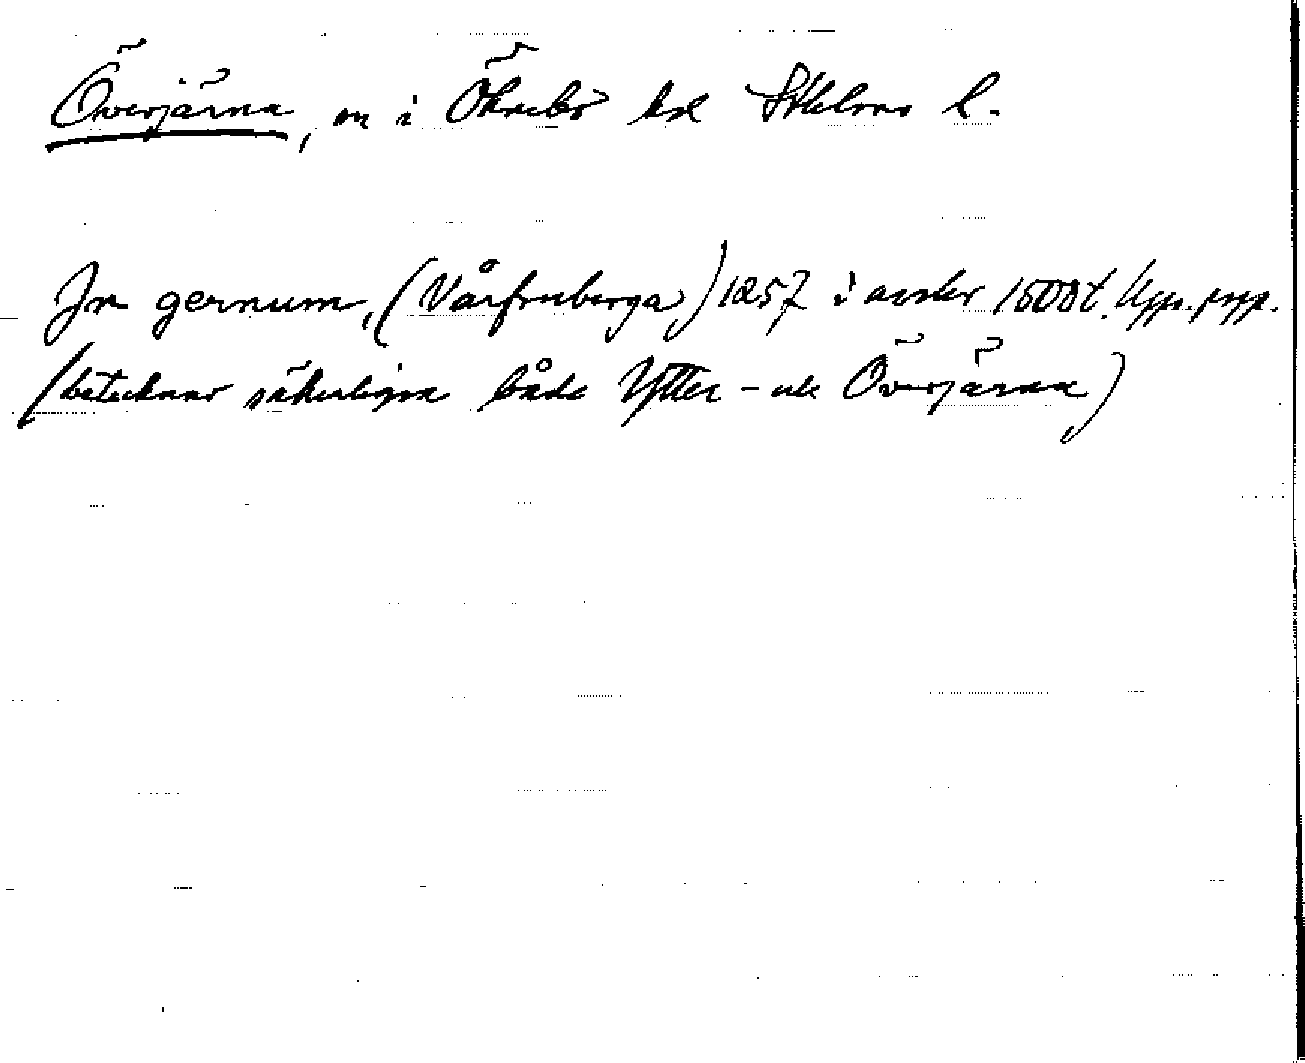 Överjärna, sn i Öknebo hd Sthlms l.
Jn gernum, (Vårfruberga) 1257 i avskr 1500 t. Upps. papp.
(betecknar säkerligen både Ytter- ock Överjärna)